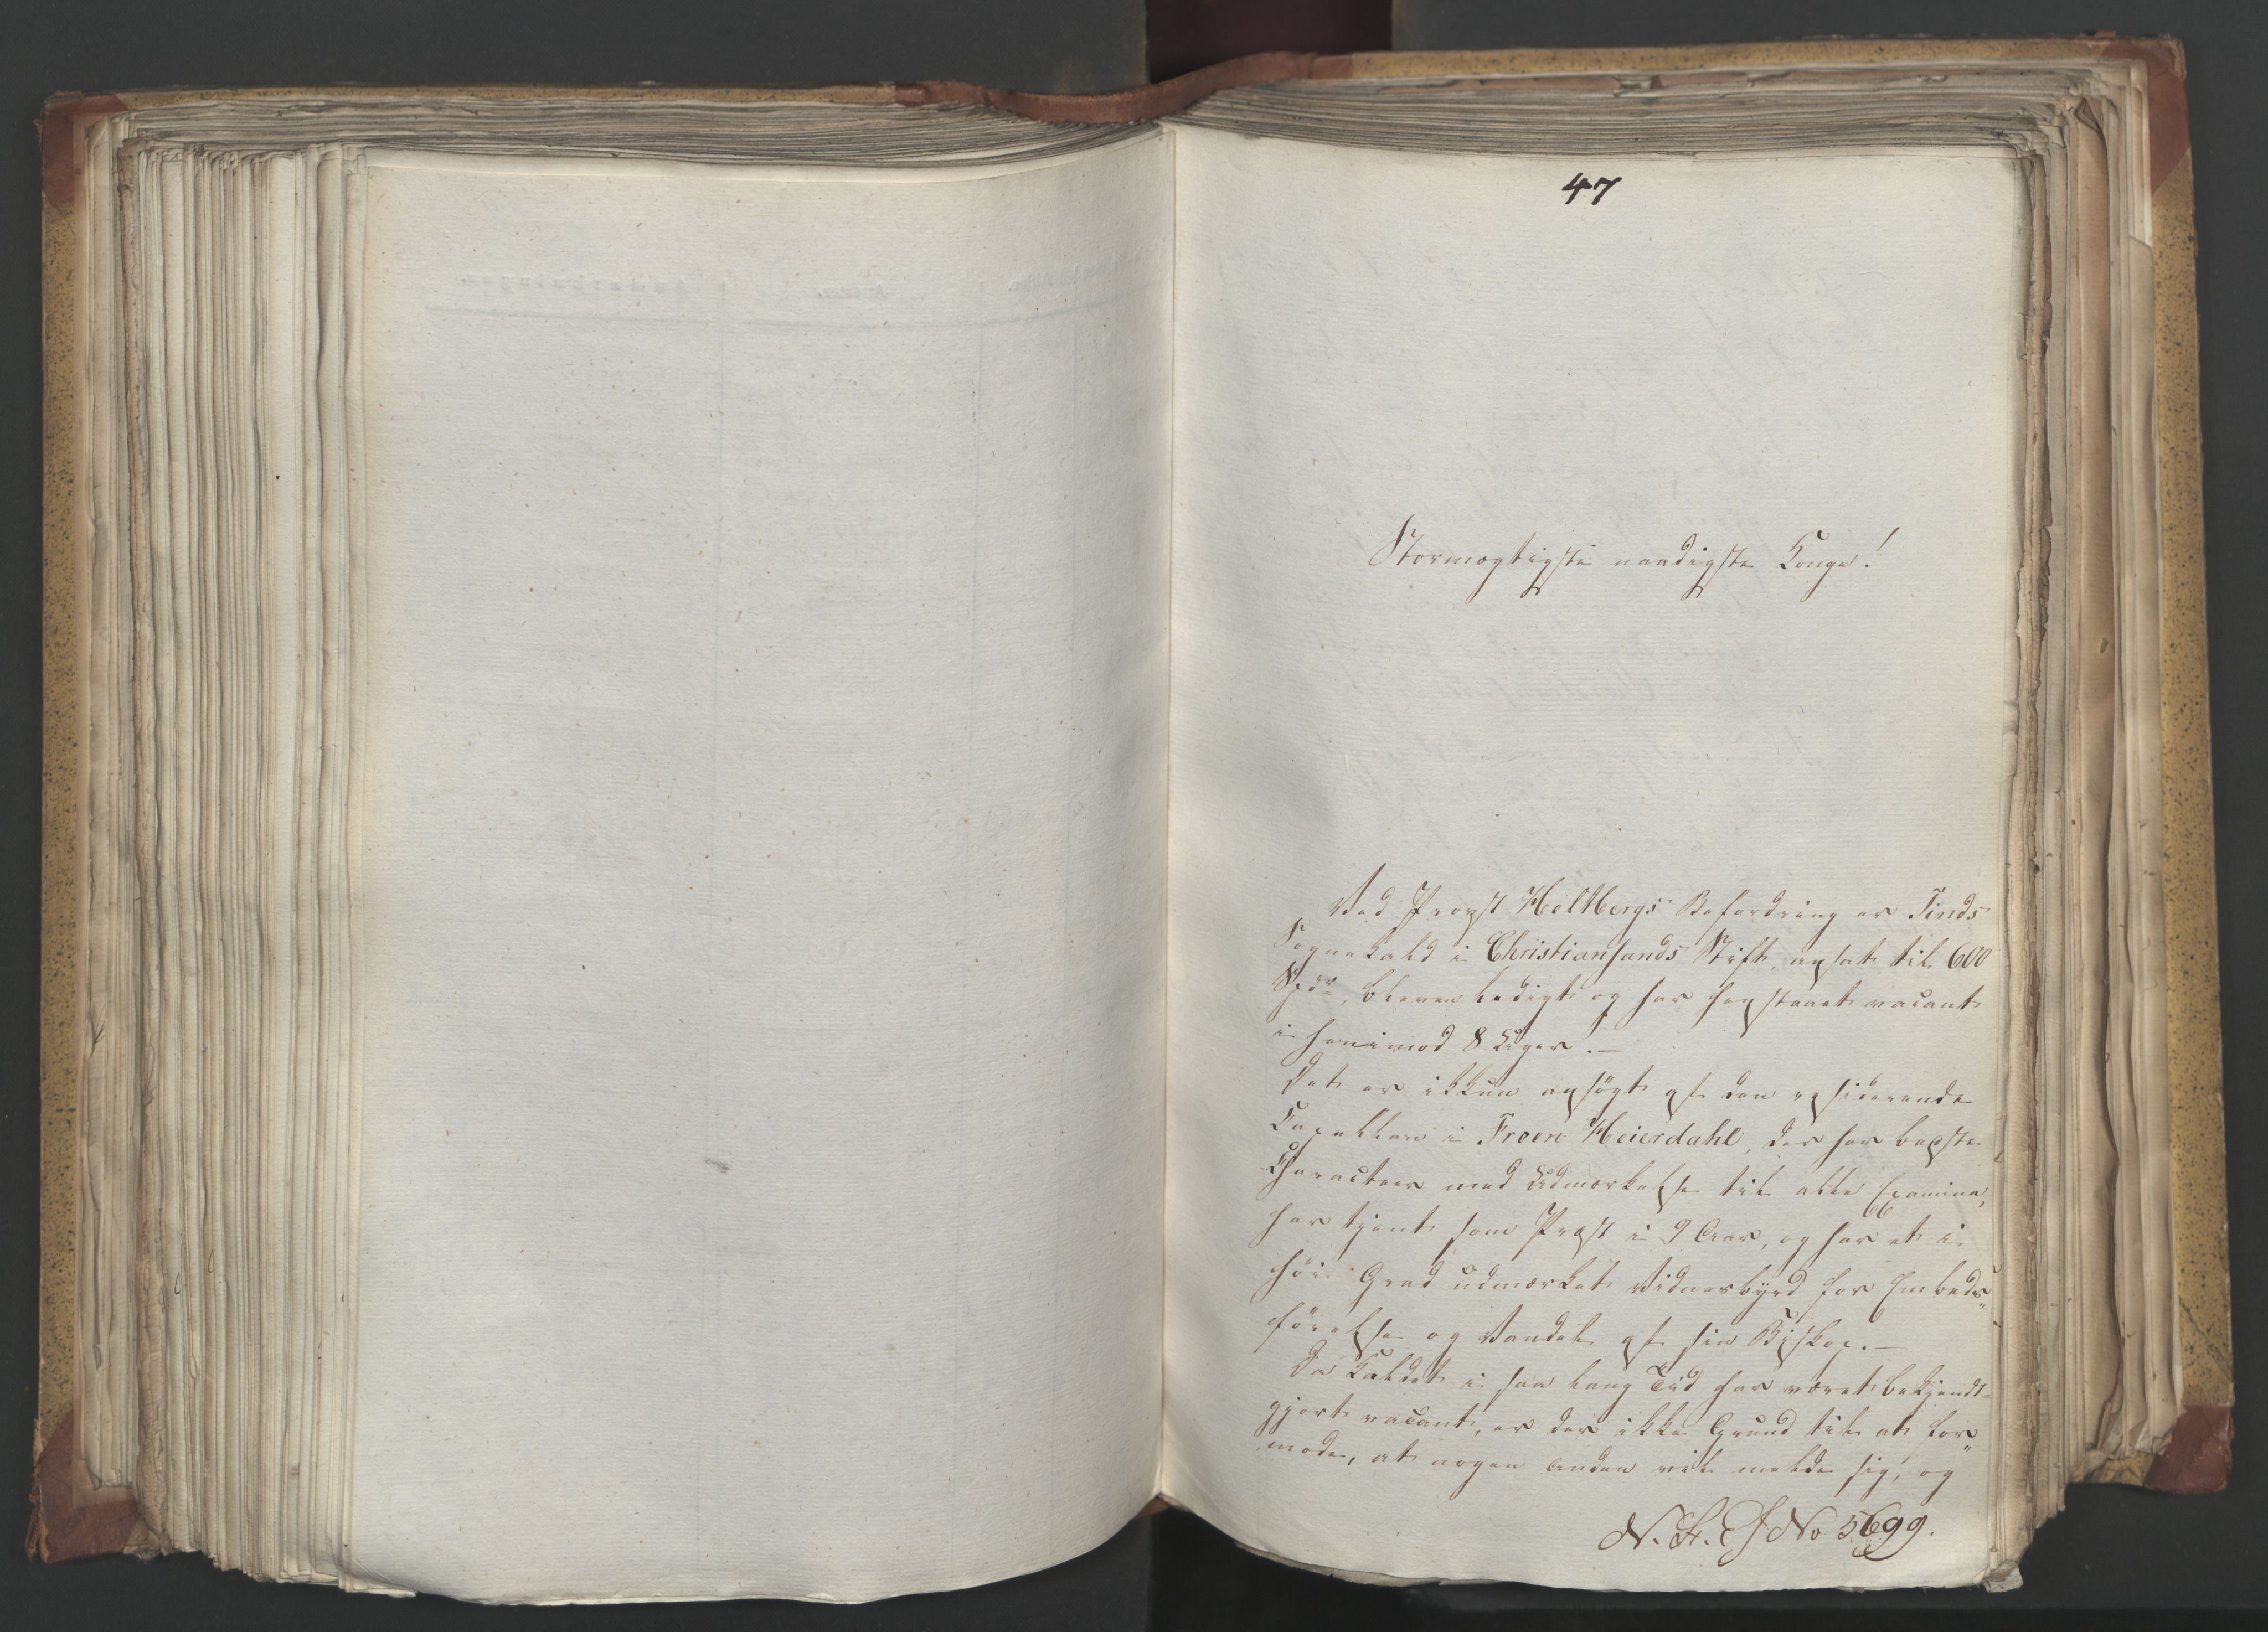 47
Stormægtigste naadigste Konge!
Ved Provst Heltbergs Befordring er Tinds
Sognekald i Christiansands Stift, ansat til 600
Spdr, bleven ledigt og har henstaaet vacant
i henimod 8 Uger. —
Det er ikkun ansøgt af den residerende
Capellan i Froen Heierdahl, der har bedste
Characteer med Udmærkelse til alle Examina,
har tjent som Præst i 9 Aar, og har et i
höi Grad udmærket Vidnesbyrd for Embeds„
förelse og Vandel af sin Biskop. —
Da Kaldet i saa lang Tid har været bekjendt-
gjort vacant, er der ikke Grund til at for„
mode, at nogen anden vil melde sig, og
No 5699.